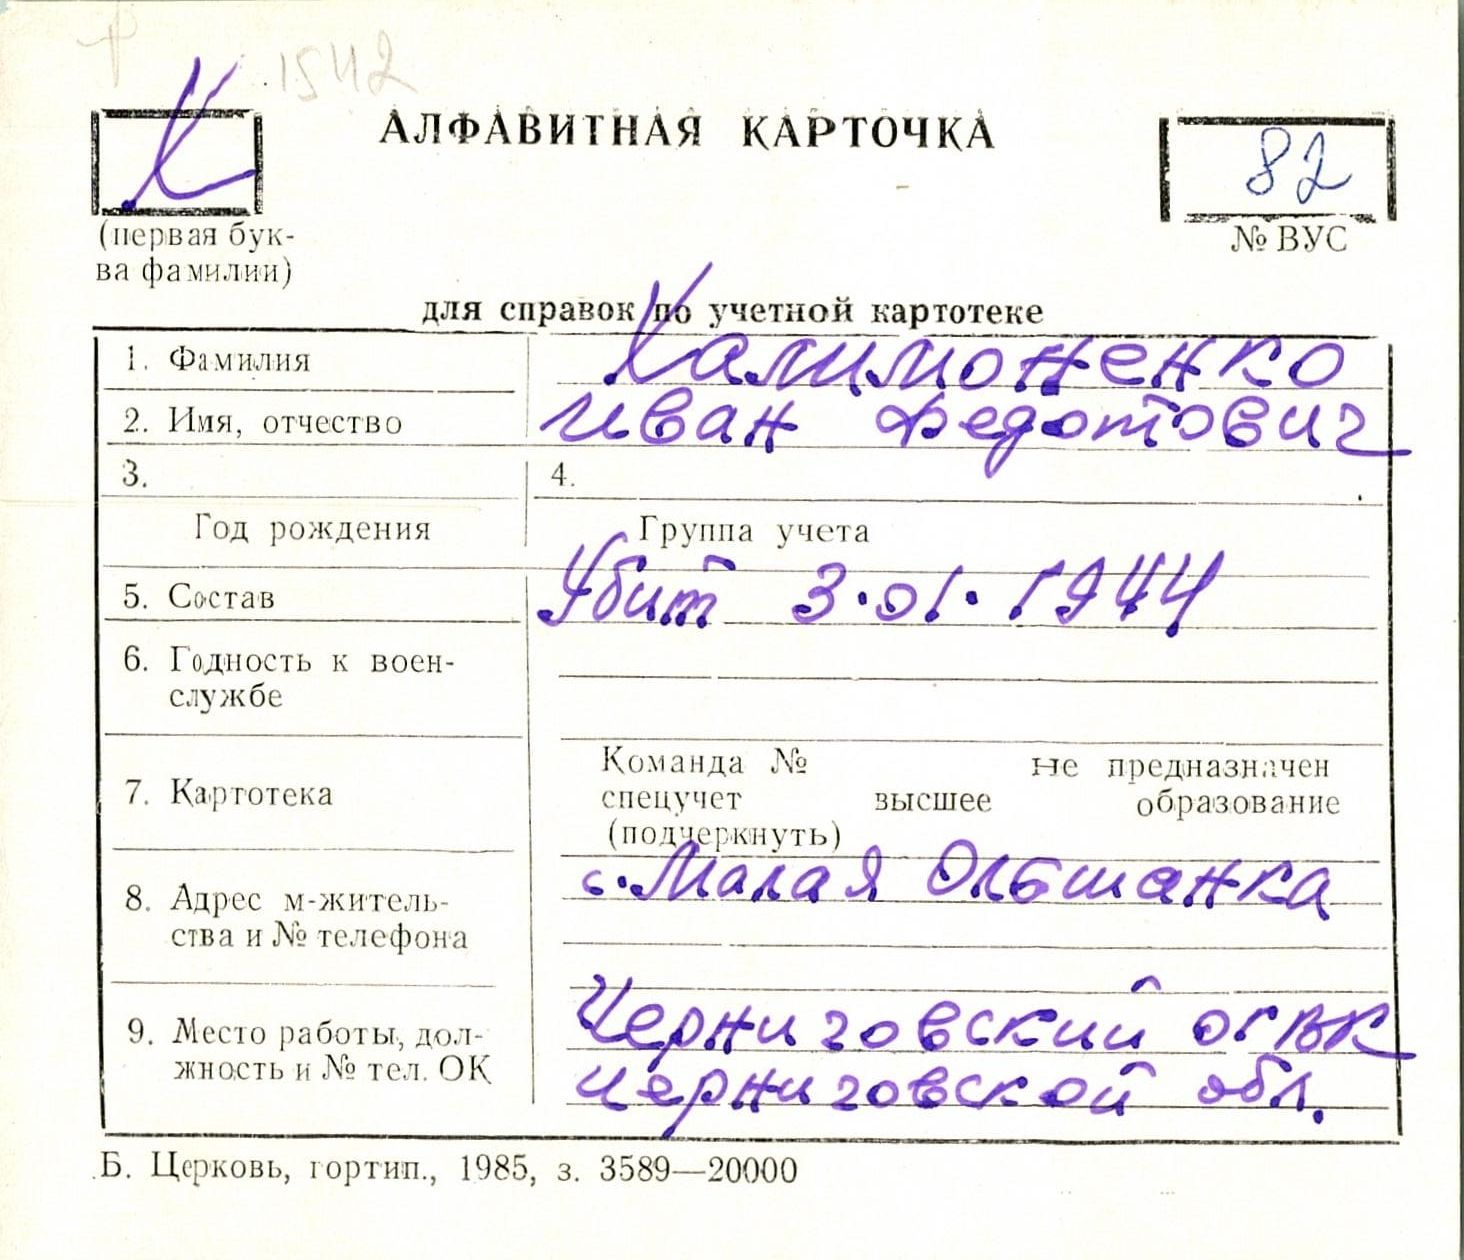 1542
К
АЛФАВИТНАЯ КАРТОЧКА
82
(первая бук-
ва фамилии)
№ ВУС
для справок по учетной картотеке
1. Фамилия
Халимоненко
2. Имя, отчество
Иван Федотович
3.
4.
Год рождения
Группа учета
5. Состав
Убит 3.01.1944
6. Годность к воен-
службе
Команда № не предназначен
7. Картотека
спецучет высшее образование
(подчеркнуть)
с. Малая Ольшанка
8. Адрес м-житель-
ства и № телефона
Черниговский ОГВК
9. Место работы, дол-
жность и № тел. ОК
Черниговской обл.
Б. Церковь, гортип., 1985, з. 3589—20000